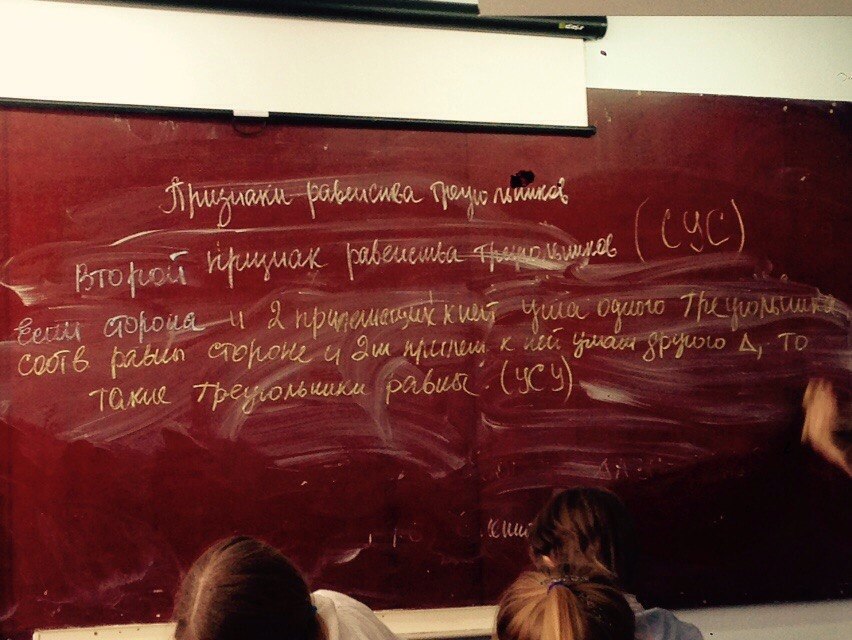 Признаки равенства треугольников
Второй признак равенства треугольников (СУС)
Если сторона и 2 прилежащих к ней угла одного треугольника
соотв равны стороне и 2ум прилеж к ней углам другого Δ, то
такие треугольники равны. (УСУ)